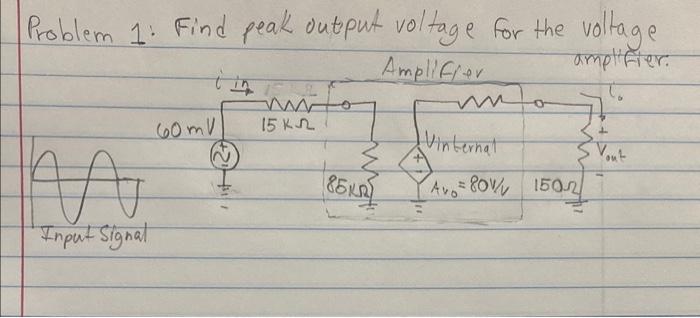 Problem 1: Find peak output voltage for the voltage
amplifier.
Amplifier
i in
i o
60mV
15 KΩ
Vinternal
+
-
+
Vout
-
85KΩ
Avo = 80V/V
150Ω
Input Signal